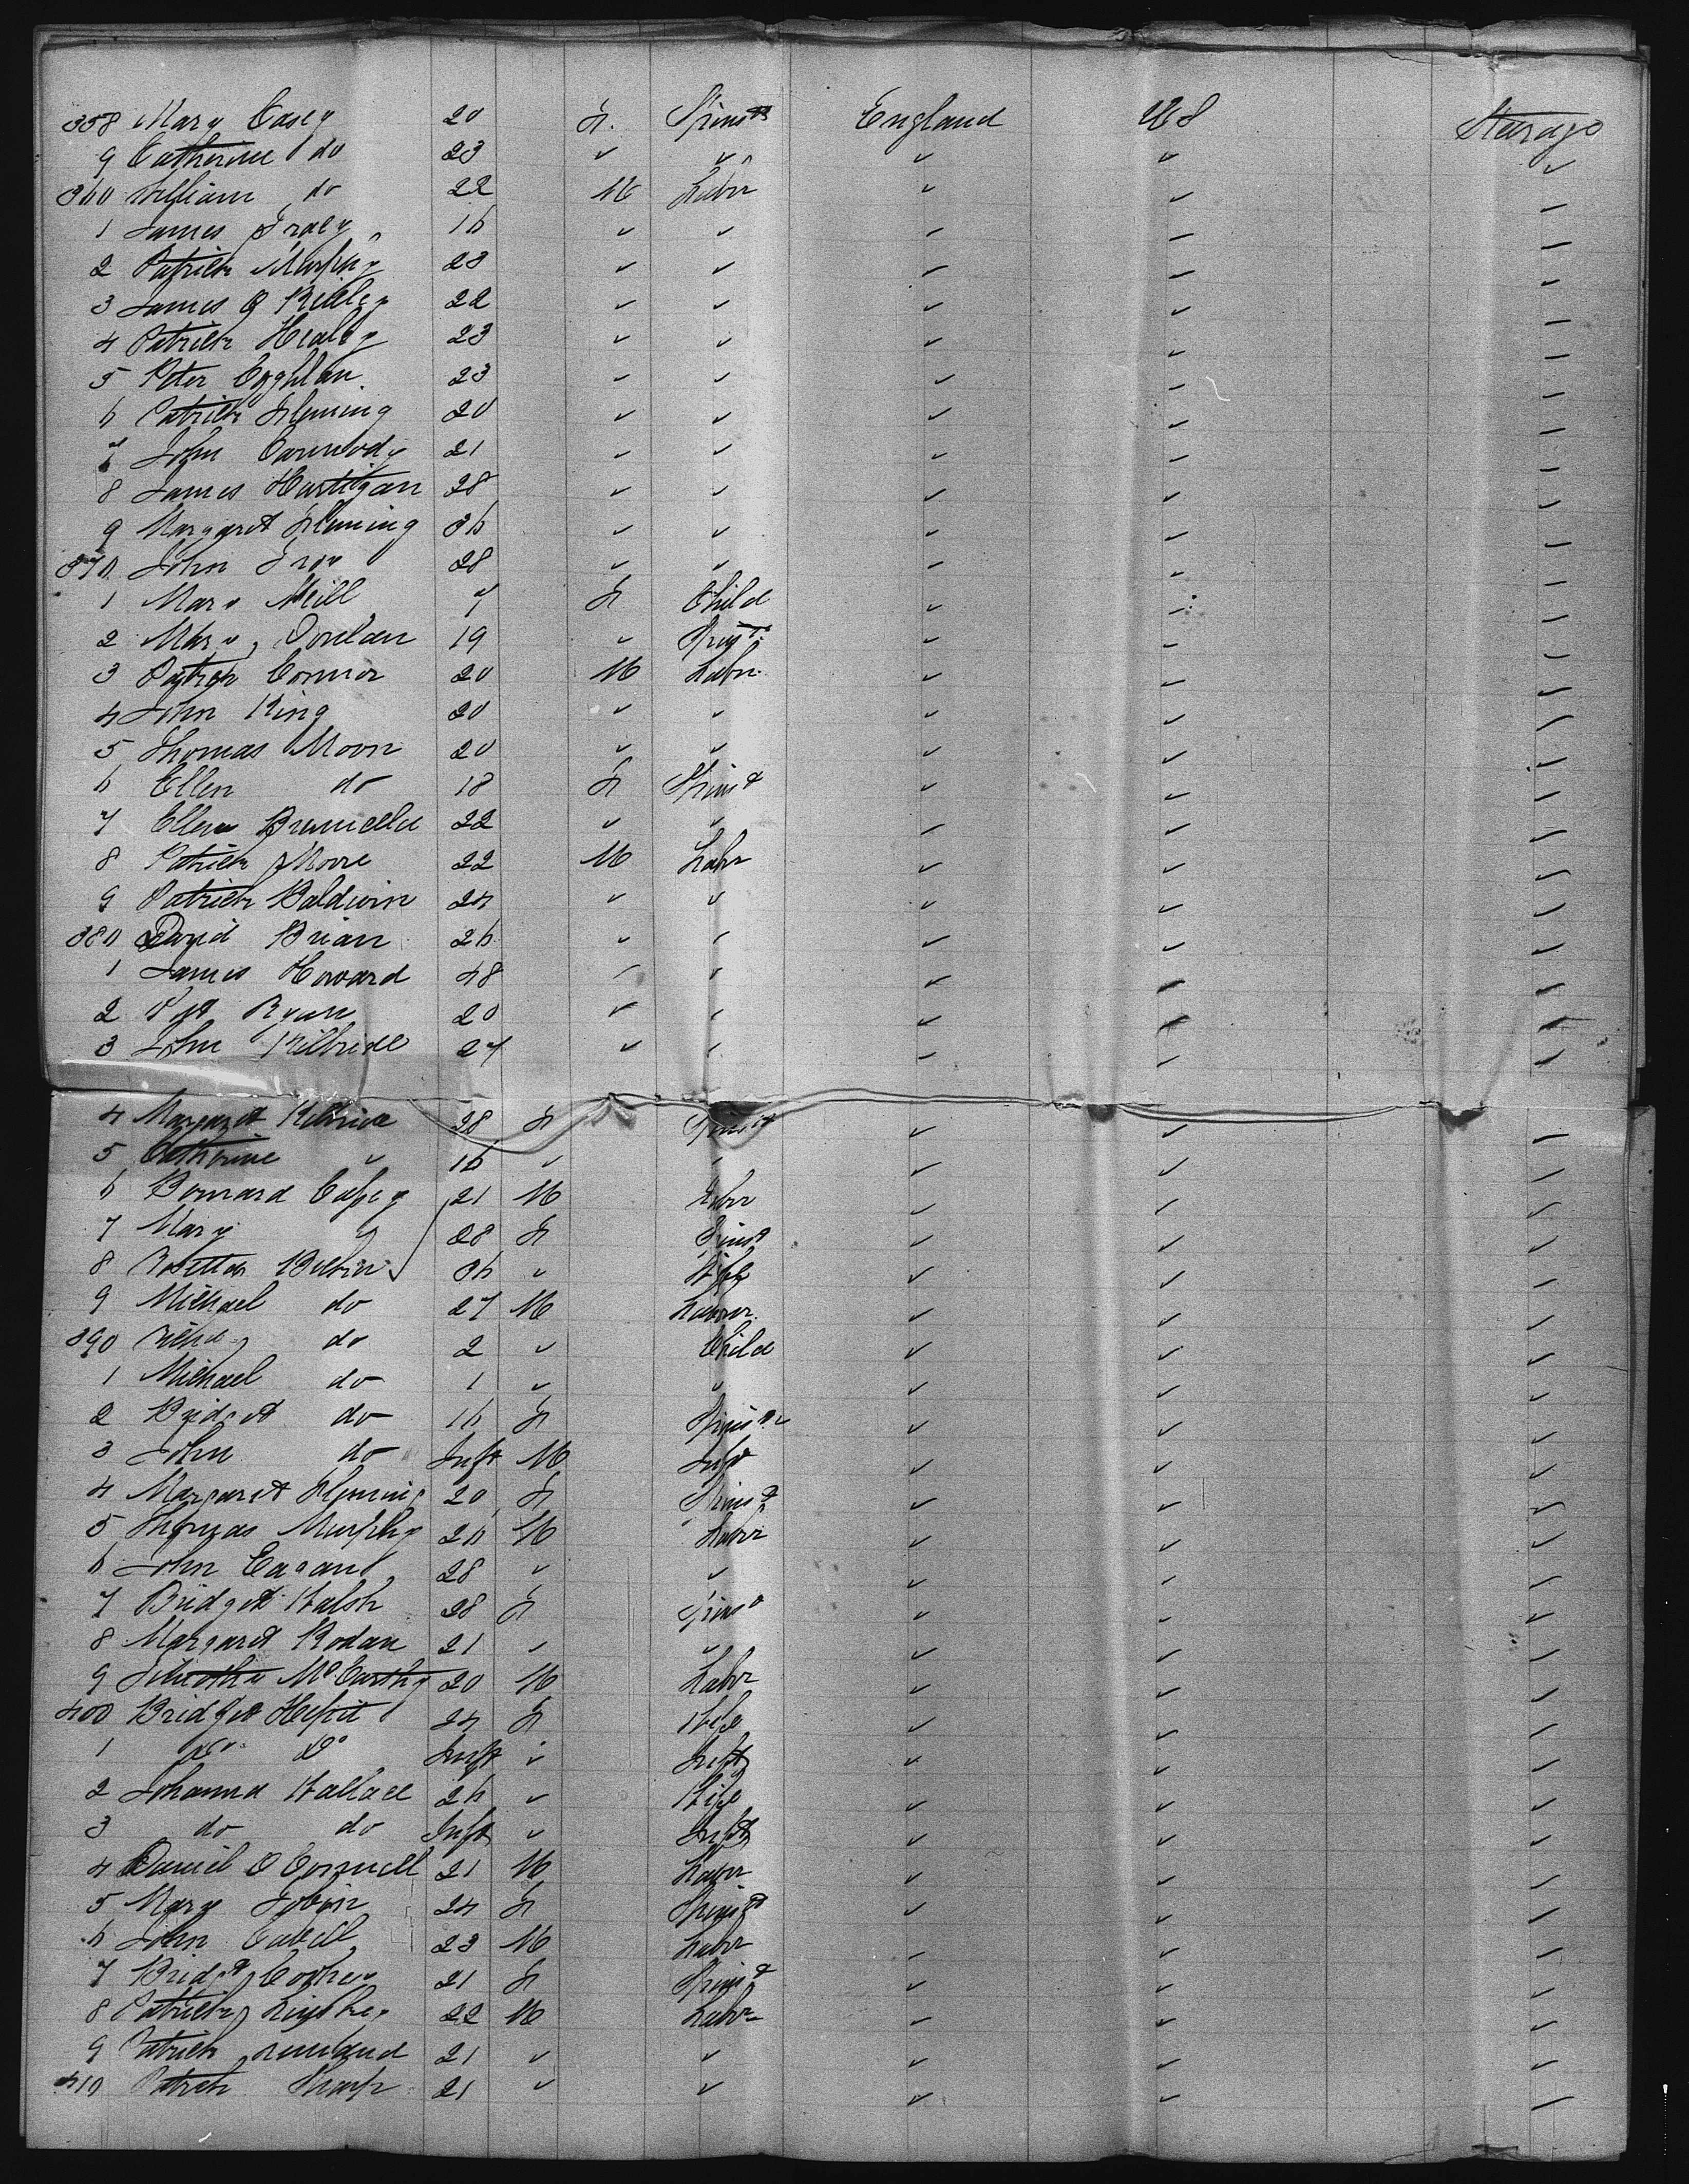 358 Mary Casey 20 F. Spinstr England US Steerage
9 Catherine do 23 " " " " "
360 William do 22 M Labr " " "
1 James 16 " " " " "
2 Patrick Murphy 23 " " " " "
3 James O Reilley 22 " " " " "
4 Patrick Healey 23 " " " " "
5 Peter Coghlan 23 " " " " "
6 Patrick Fleming 20 " " " " "
7 John Carmody 21 " " " " "
8 James Hartigan 28 " " " " "
9 Margaret Fleming 36 " " " " "
370 John Troy 28 " " " " "
1 Mary Neill 7 F Child " " "
2 Mary 19 " Spinst " " "
3 Patrick Connor 20 M Labr " " "
4 John King 20 " " " " "
5 Thomas Moon 20 " " " " "
6 Ellen do 18 F Spinst " " "
7 Ellen 22 " " " " "
8 Patrick Moore 22 M Labr " " "
9 Patrick Baldwin 24 " " " " "
380 David Brian 26 " " " " "
1 James Howard 48 " " " " "
2 Pat Ryan 20 " " " " "
3 John Kilbride 27 " " " " "
4 Margaret Kilbride 28 F Spinst " " "
5 Catherine " 16 " " " " "
6 Bernard 21 M Labr " " "
7 Mary 28 F Spinst " " "
8 36 " Wife " " "
9 Michael do 27 M Labr " " "
390 do 2 " Child " " "
1 Michael do 1 " " " " "
2 Bridget do 16 F Spinstr " " "
3 John do Inft M Inft " " "
4 Margaret Fleming 20 F Spinst " " "
5 Thomas Murphy 26 M Labr " " "
6 John Eagan 28 " " " " "
7 Bridget Walsh 28 F Spinst " " "
8 Margaret Rodan 21 " " " " "
9 Timothy McCarthy 20 M Labr " " "
400 Bridget 24 F Wife " " "
1 Do Do Inft " Inft " " "
2 Johanna Wallace 26 " Wife " " "
3 do do Inft " Inft " " "
4 Daniel O Connell 21 M Labr " " "
5 Mary Tobin 24 F Spinst " " "
6 John Cahill 23 M Labr " " "
7 Bridgt 21 F Spinst " " "
8 Patrick 22 M Labr " " "
9 Patrick 21 " " " " "
410 Patrick Sharp 21 " " " " "